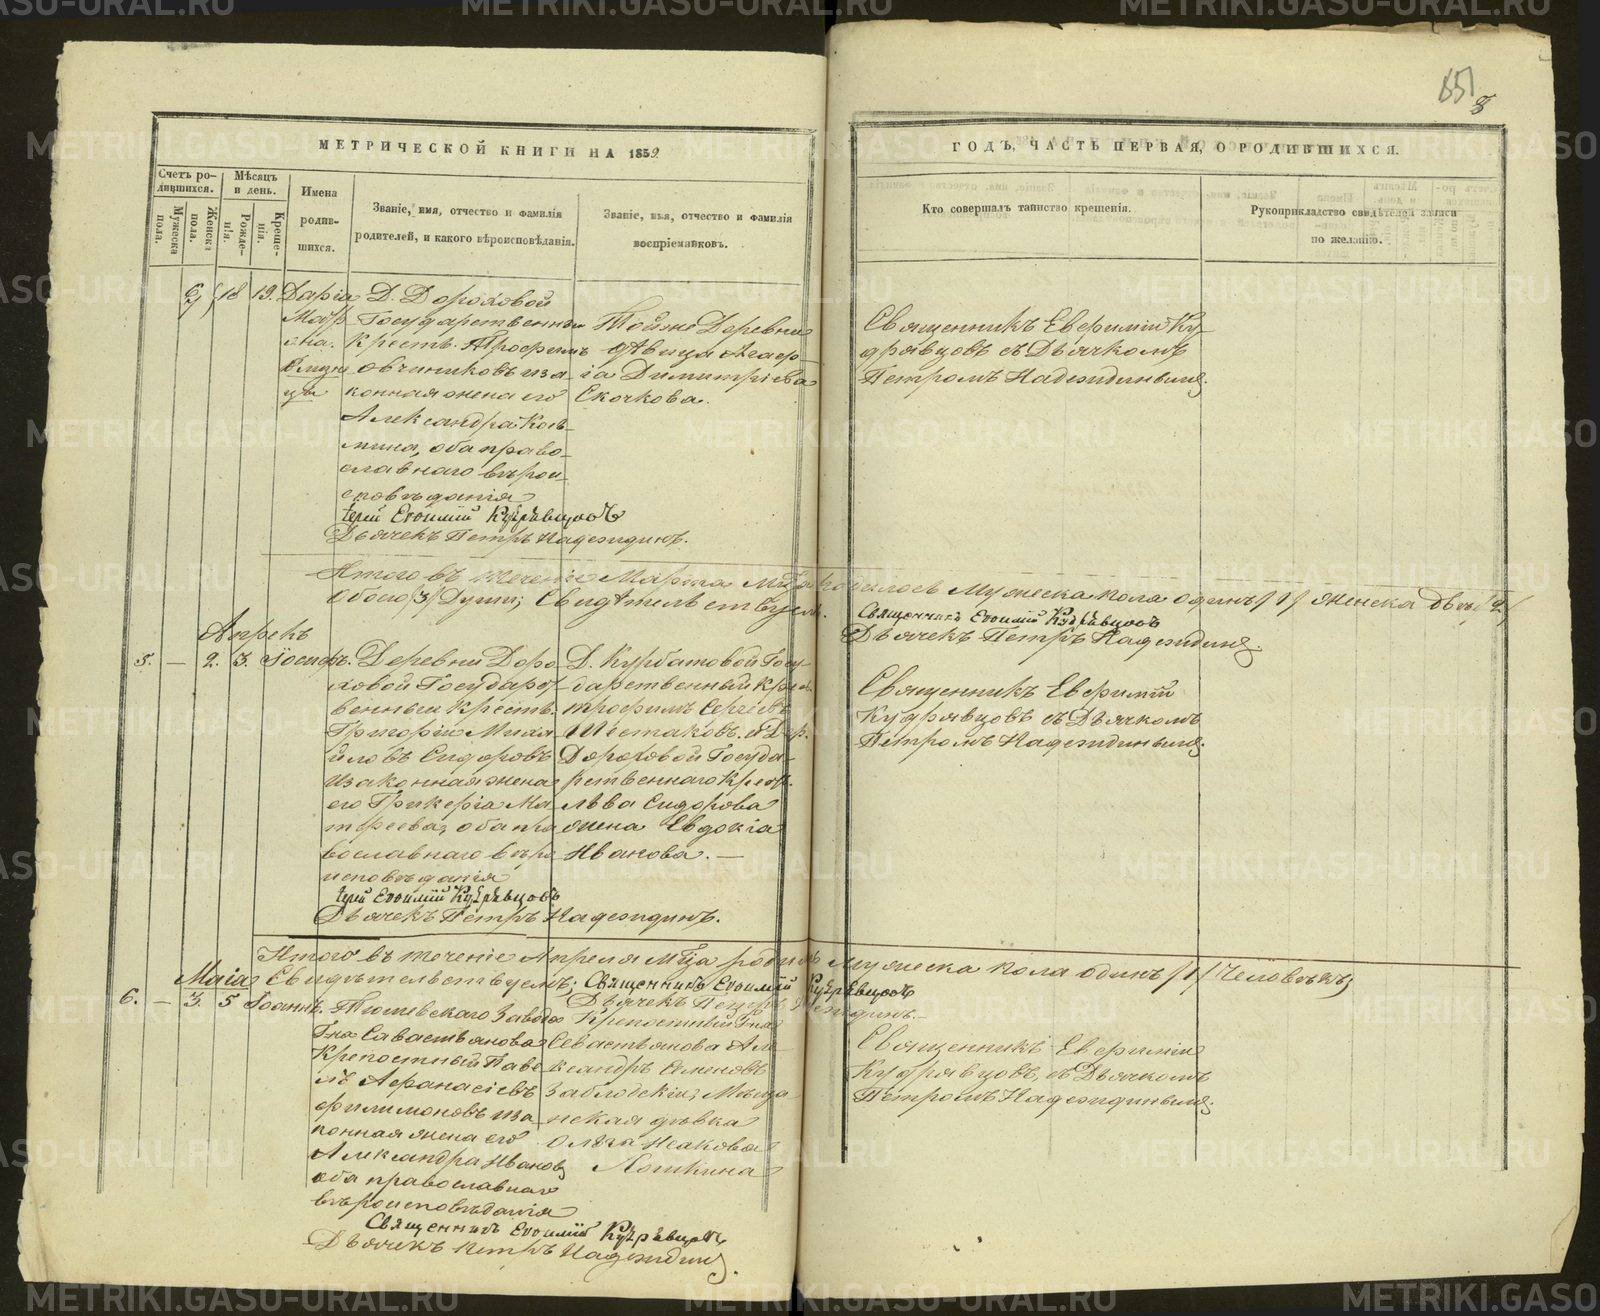 651
8
МЕТРИЧЕСКОЙ КНИГИ НА 1859
ГОДЪ, ЧАСТЬ ПЕРВАЯ, О РОДИВШИХСЯ.
Счетъ ро-
дившихся.
Мужеска
пола.
Женска
пола.
Мѣсяцъ
и день.
Рожде-
нія.
Креще-
нія.
Имена
родив-
шихся.
Званіе, имя, отчество и фамилія
родителей, и какого вѣроисповѣданія.
Званіе, имя, отчество и фамилія
воспріемниковъ.
Кто совершалъ таинство крещенія.
Рукоприкладство свидѣтелей записи
по желанію.
18 19. Дарія
Близне
цы
Д. Дороховой
Государственный
Крест. Трофимъ
Овчинниковъ иза-
конная жена его
Александра Кось-
мина, оба право-
славнаго вѣрои-
сповѣданія
Іерей Евѳимій Кудрявцовъ
Дьячекъ Петръ Надеждинъ.
Тойже Деревни
дѣвица Агаѳ-
ія Димитріева
Скочкова.
Священникъ Евфимій Ку-
дрявцовъ съ Дьячкомъ
Петромъ Надеждинымъ.
Итого въ теченіе Марта Мца родилось Мужеска пола одинъ /1/ женска двѣ /2/
Обоего /3/ Душъ; Свидѣтельствуемъ.
Священникъ Евѳимій Кудрявцовъ
Дьячекъ Петръ Надеждинъ.
Апрель
5. — 2. 3. Іосифъ.
Деревни Доро-
ховой Государст-
венный Крестъ.
Григорій Миха-
йловъ Сидоровъ
иза конная жена
его Гликерія Ма-
тфеева, оба пра
вославнаго вѣро
исповѣданія
Іерей Евѳимій Кудрявцовъ
Дьячекъ Петръ Надеждинъ.
Д. Курбатовой Госу-
дарственный Крест.
Трофимъ Сергѣевъ
Шестаковъ, и Дер.
Дороховой Госуда-
рственнаго Крест.
Льва Сидорова
жена Евдокіа
Иванова. —
Священникъ Евфимій
Кудрявцовъ съ Дьячкомъ
Петромъ Надеждинымъ.
Итого въ теченіе Апреля Мца родилось Мужеска пола одинъ /1/ Человѣкъ;
Свидѣтельствуемъ; Священникъ Евѳимій Кудрявцовъ
Дьячекъ Петръ Надеждинъ.
Маіа
6. — 3. 5 Іоаннъ.
Завода
Гна Савастьянова
Крепостный Паве
лъ Афанасіевъ
Филимоновъ иза
конная жена его
Александра Иванов
оба православнаго
вѣроисповѣданія
Священникъ Евѳимій Кудрявцовъ
Дьячекъ Петръ Надеждинъ.
Крепостный Гна
Севастьянова Але-
ксандръ Семеновъ
Заблоцкій; Мѣща
нская дѣвка
Олга Исакова
Лошкина
Священникъ Евфимій
Кудрявцовъ, съ Дьячкомъ
Петромъ Надеждинымъ.